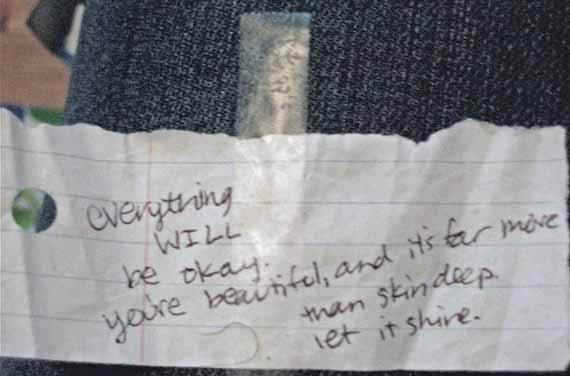 everything
WILL
be okay.
you're beautiful, and it's far more
than skin deep
let it shine.